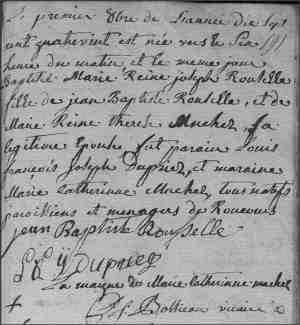 Le premier 8bre de l'année dix sept
cent quatrevint est née vers le six
heure du matin et le meme jour
Baptisé Marie Reine joseph Rousselle
fille de jean Baptiste Rousselle, et de
Marie Reine therese Muchez, sa
legitime epouse, fut parain Louis
françois Joseph Dupriez, et maraine
Marie Catherinne Muchez, tous natifs
paroissiens et menagers de
jean Baptiste Rousselle
Dupriez
La marque de Marie Catherinne muchez
+
vicaire